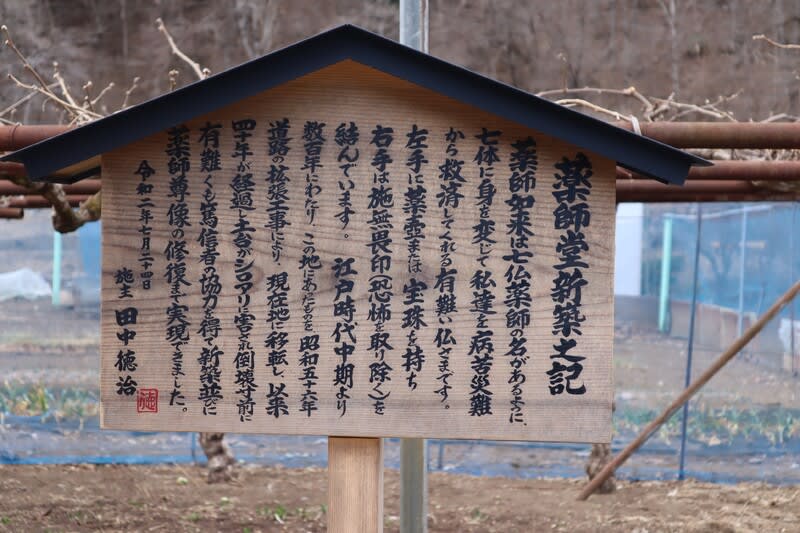 薬師堂新築之記
薬師如来は七仏薬師の名があるように、
七体に身を変じて私達を病苦災難
から救済してくれる有難い仏さまです。
左手に薬壺または宝珠を持ち
右手は施無畏印(恐怖を取り除く)を
結んでいます。江戸時代中期より
数百年にわたり、この地にあったものを昭和五十六年
道路の拡張工事により、現在地に移転し、以来
四十年が経過し土台がシロアリに害され倒壊寸前に
有難くも篤信者の協力を得て新築並びに
薬師尊像の修復まで実現できました。
令和二年七月二十四日
施主 田中徳治